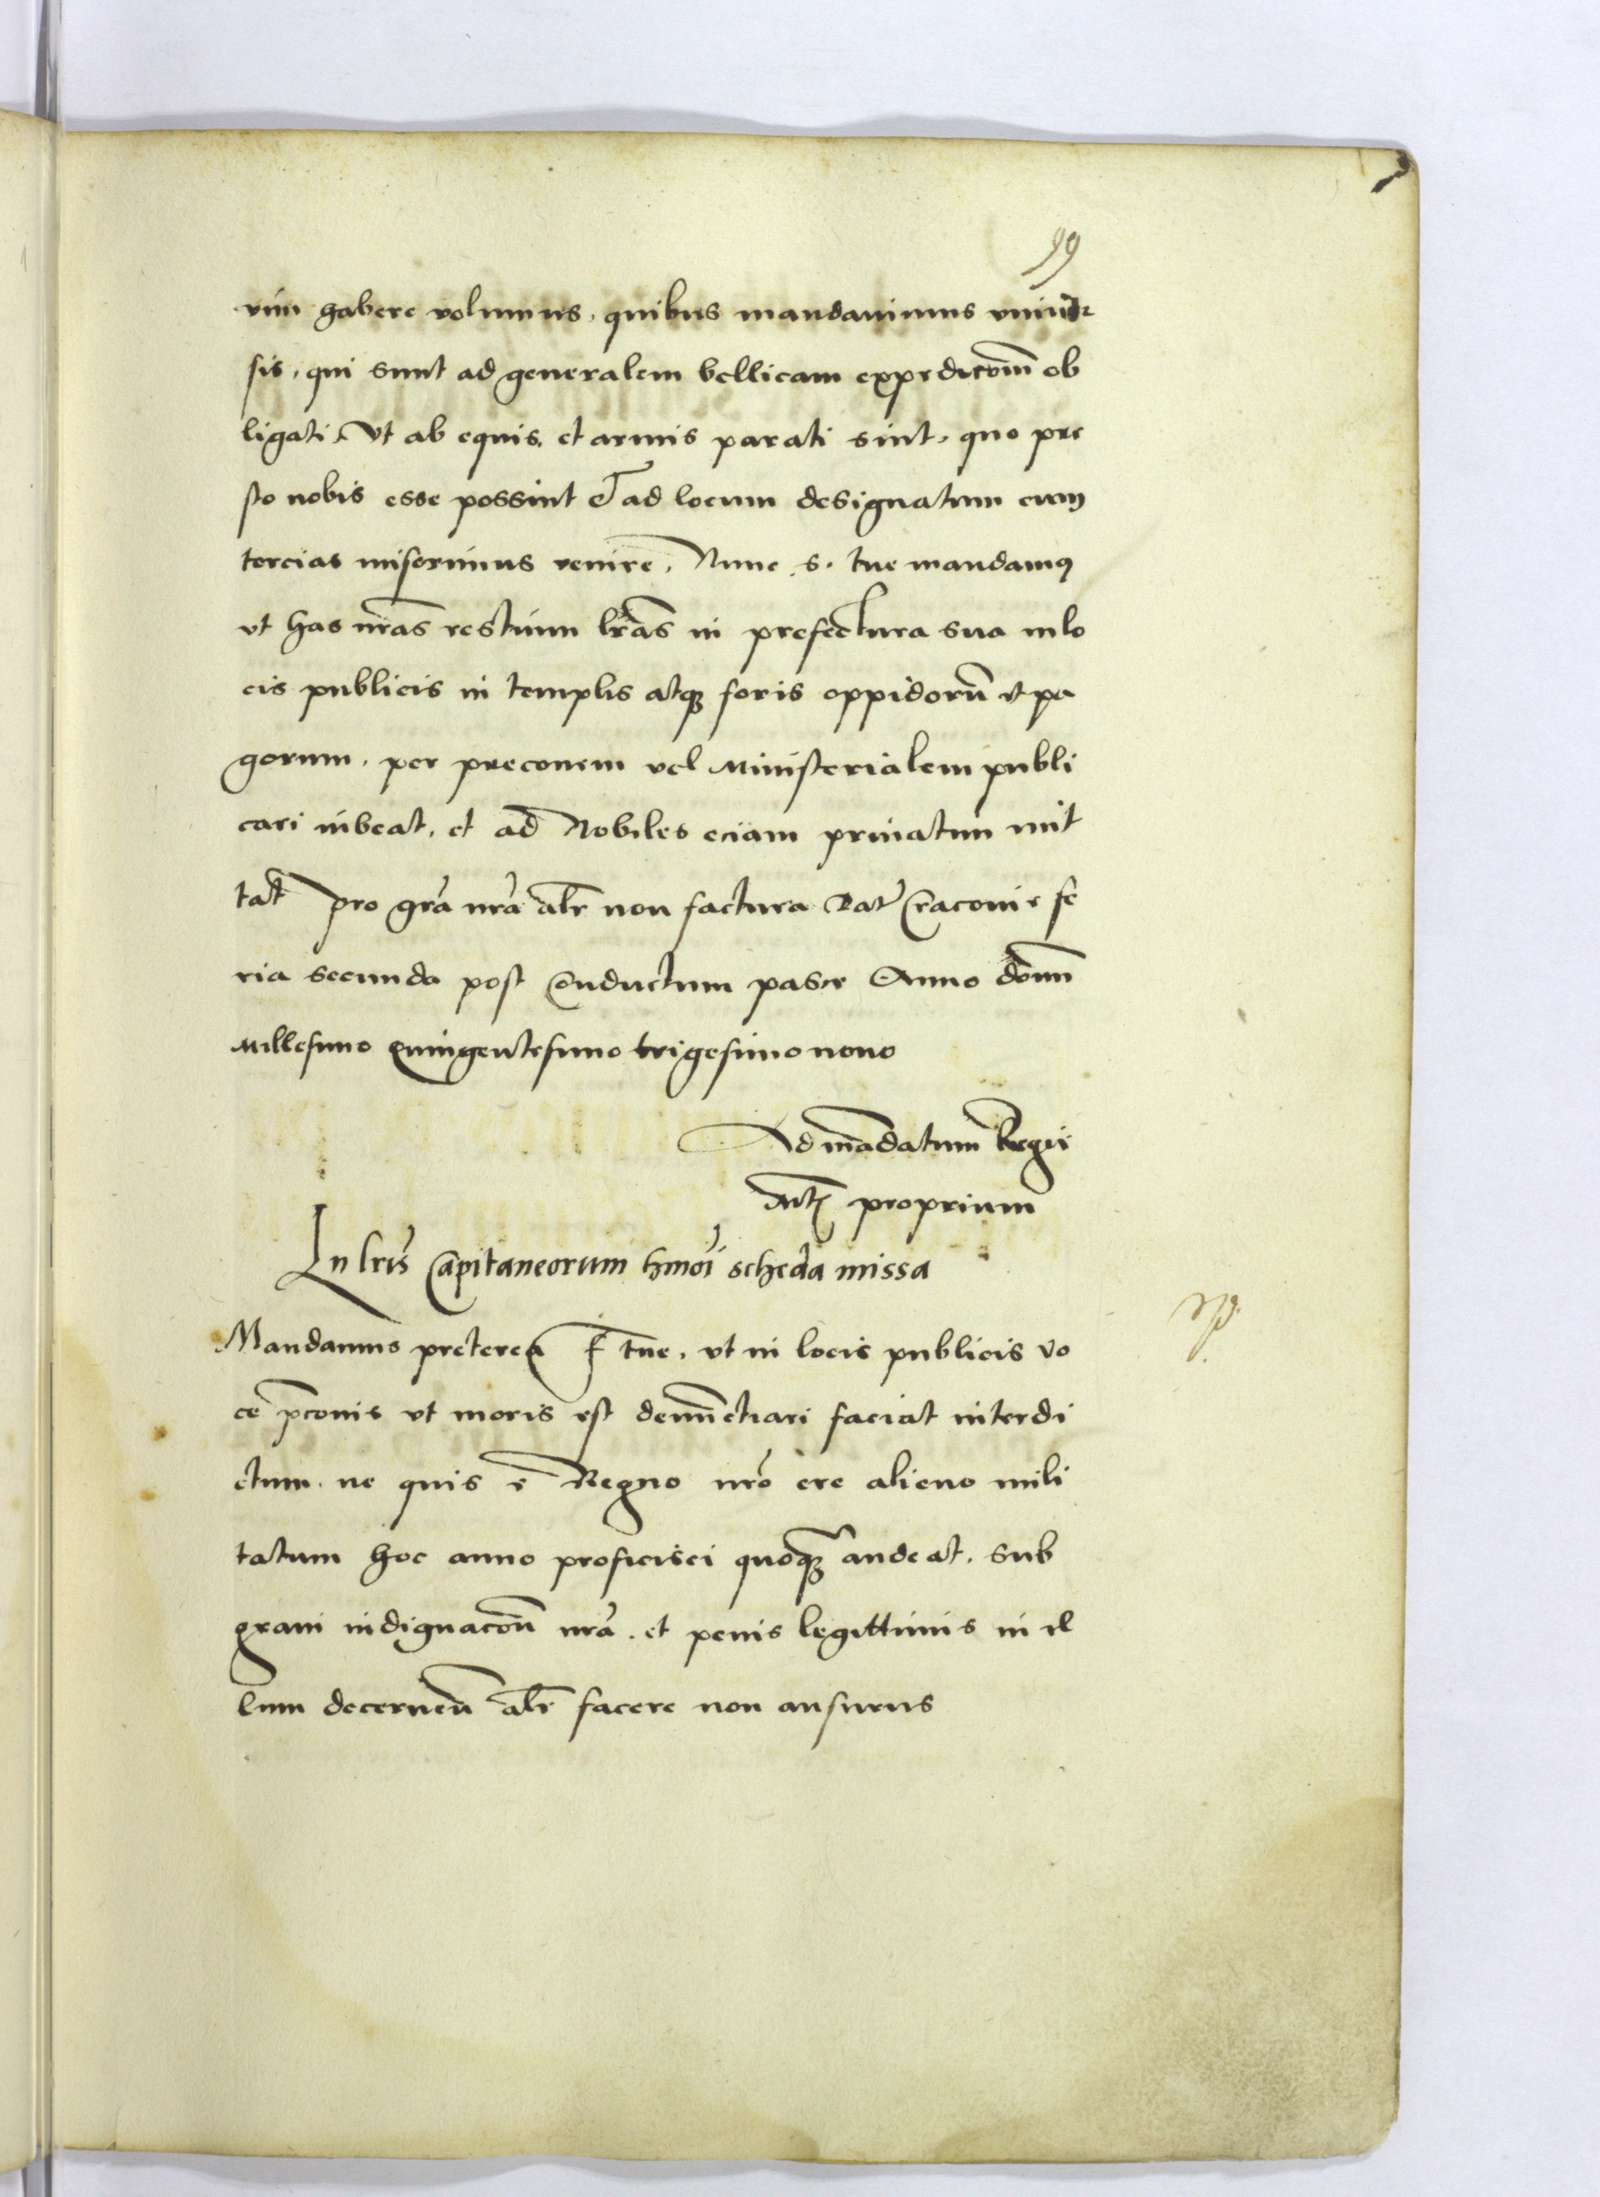 99
vim habere volumus, quibus mandavimus univer
sis, qui sunt ad generalem bellicam expedicoem ob
ligati, Ut ab equis, et armis parati sint, quo pre
sto nobis esse possint et ad locum designatum cum
tercias miserimus venire. Nunc s. tue mandamus
ut has nras restium lras in prefectura sua in lo
cis publicis in templis atque foris oppidorum et pa
gorum, per preconem vel Ministerialem publi
cari iubeat, et ad Nobiles eciam privatim mit
tat pro gra nra alr non factura Dat Cracovie fe
ria secunda post Conductum pasce Anno domi
Millesimo Quingentesimo trigesimo nono
Ad mandatum Regie
Mtis proprium
In lris Capitaneorum hmoi scheda missa
Mandamus preterea f tue, ut in locis publicis vo
ce pconis ut moris est denunctiari faciat interdi
ctum, ne quis e Regno nro ere alieno mili
tatum hoc anno proficisci quoque audeat, sub
gravi indignacoe nra, et penis legittimis in il
lum decernen alr facere non ausurus